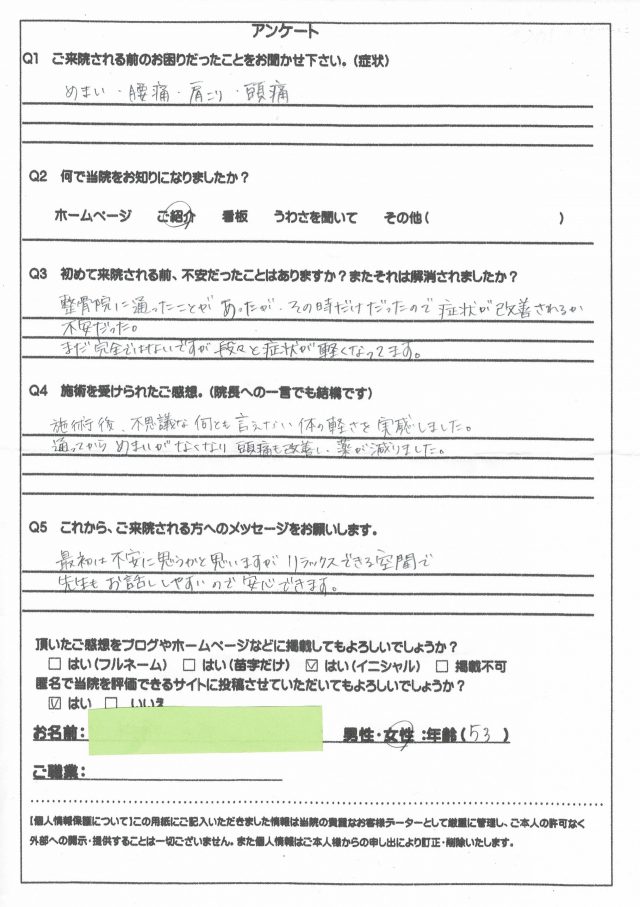 アンケート
Q1 ご来院される前のお困りだったことをお聞かせ下さい。(症状)
めまい・腰痛・肩こり・頭痛
Q2 何で当院をお知りになりましたか?
ホームページ ご紹介 看板 うわさを聞いて その他( )
Q3 初めて来院される前、不安だったことはありますか?またそれは解消されましたか?
整骨院に通ったことがあったが、その時だけだったので症状が改善されるか
不安だった。
まだ完全ではないですが段々と症状が軽くなってます。
Q4 施術を受けられたご感想。(院長への一言でも結構です)
施術後、不思議な何とも言えない体の軽さを実感しました。
通ってからめまいがなくなり頭痛も改善し、薬が減りました。
Q5 これから、ご来院される方へのメッセージをお願いします。
最初は不安に思うかと思いますがリラックスできる空間で
先生もお話ししやすいので安心できます。
頂いたご感想をブログやホームページなどに掲載してもよろしいでしょうか?
□ はい(フルネーム) □ はい(苗字だけ) ☑ はい(イニシャル) □ 掲載不可
匿名で当院を評価できるサイトに投稿させていただいてもよろしいでしょうか?
☑ はい □ いいえ
お名前: 男性・女性 :年齢(53)
ご職業:
【個人情報保護について】この用紙にご記入いただきました情報は当院の貴重なお客様データーとして厳重に管理し、ご本人の許可なく
外部への開示・提供することは一切ございません。また個人情報はご本人様からの申し出により訂正・削除いたします。